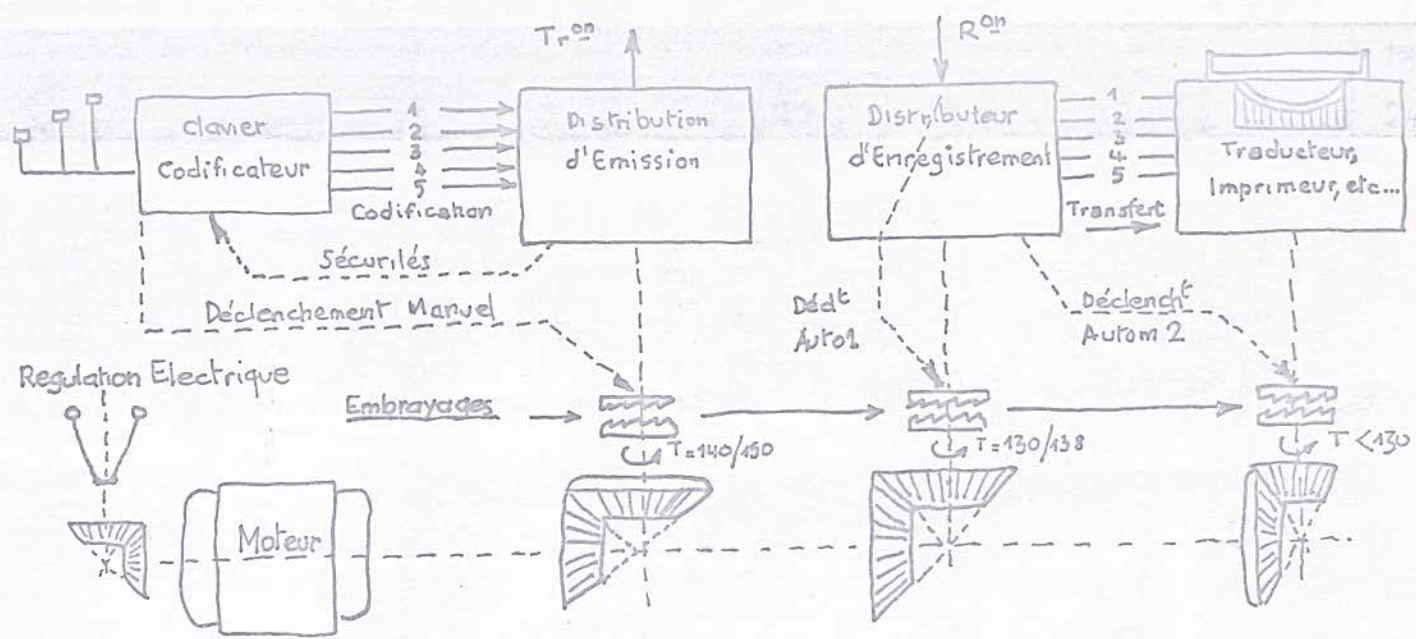 Tr on
R on
Clavier
Codificateur
1
2
3
4
5
Codification
Distribution
d'Emission
Distributeur
d'Enregistrement
1
2
3
4
5
Transfert
Traducteur,
Imprimeur, etc...
Sécurités
Déclenchement Manuel
Décl t
Auto1
Déclench t
Autom 2
Regulation Electrique
Embrayages
T=140/150
T=130/138
T<130
Moteur